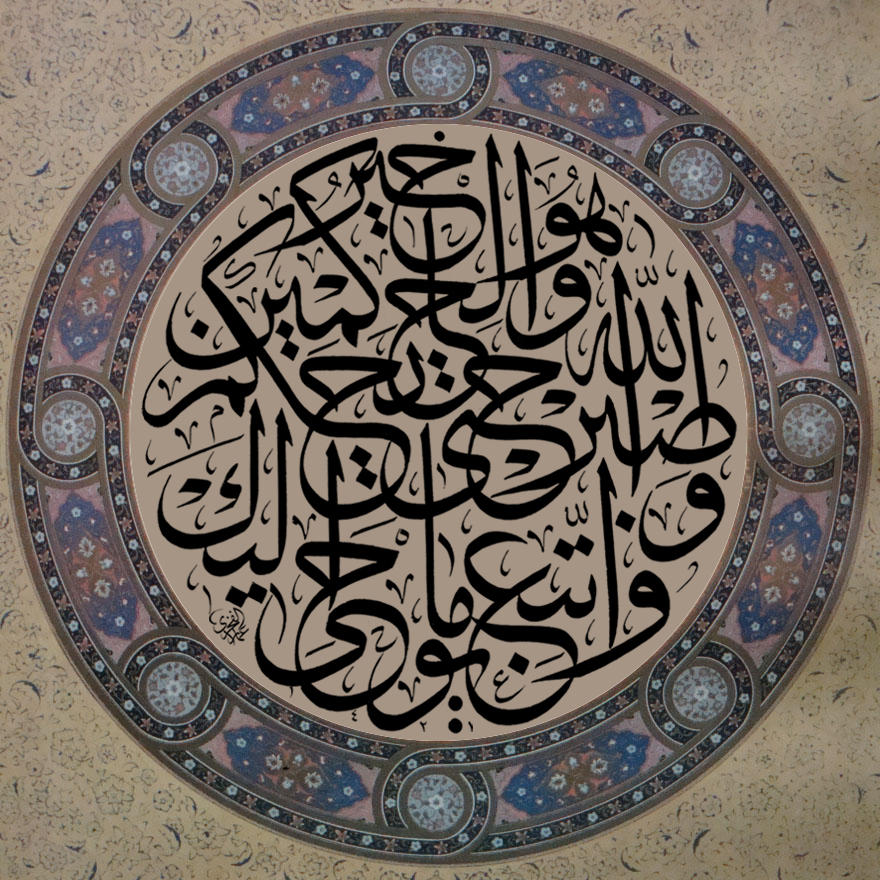 وَاتَّبِعْ مَا يُوحَىٰ إِلَيْكَ
وَاصْبِرْ حَتَّىٰ يَحْكُمَ اللَّهُ
وَهُوَ خَيْرُ الْحَٰكِمِينَ